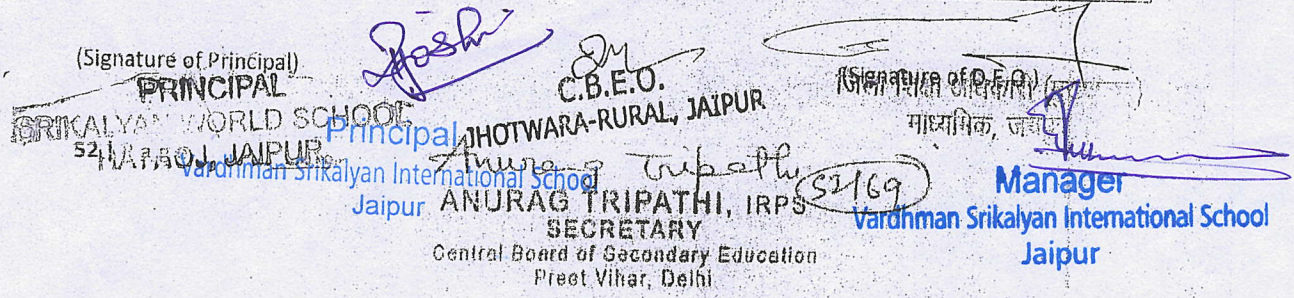 (Signature of Principal)
PRINCIPAL
SRIKALYAN WORLD SCHOOL
HATHOJ, JAIPUR
Joshi
Principal
Vardhman Srikalyan International School
Jaipur
C.B.E.O.
JHOTWARA-RURAL, JAIPUR
Anurag Tripathi
ANURAG TRIPATHI, IRPS
SECRETARY
Central Board of Secondary Education
Preet Vihar, Delhi
52/69
(Signature of D.E.O.)
जिला शिक्षा अधिकारी
माध्यमिक,
Manager
Vardhman Srikalyan International School
Jaipur